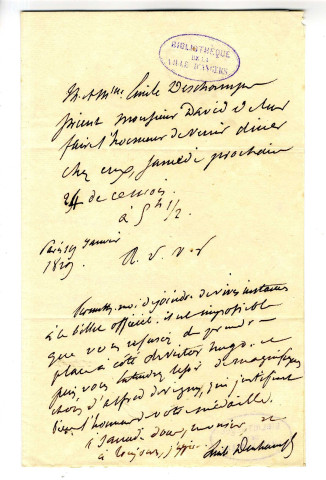 BIBLIOTHÈQUE
DE LA
VILLE D'ANGERS
M. & Mme Emile Deschamps
prient Monsieur David de leur
faire l'honneur de venir diner
chez eux, samedi prochain
24 de ce mois.
à 5 h 1/2.
Paris 19 Janvier
1829
R. S. V. P.
Permettez-moi de joindre de vives instances
à ce billet officiel. il est impossible
que vous refusiez de prendre
place à côté de Victor hugo. et
puis, vous entendrez de magnifiques
choses d'alfred de Vigny, qui justifieront
l'honneur de votre médaille.
à Samedi donc, monsieur, et
à toujours, j'espère.
Emile Deschamps